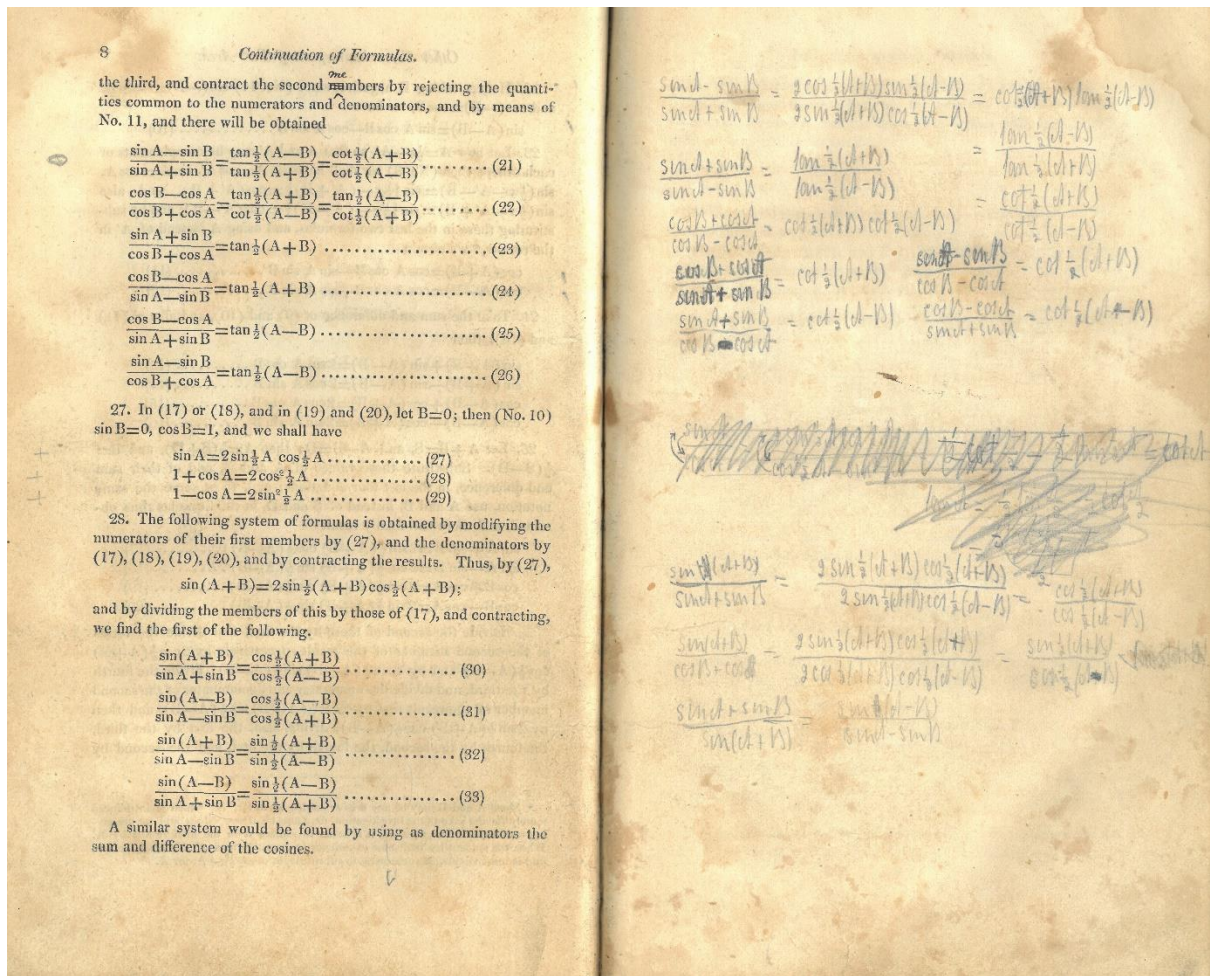 8 Continuation of Formulas.
me
the third, and contract the second numbers by rejecting the quanti-
ties common to the numerators and denominators, and by means of
No. 11, and there will be obtained
sin A—sin B / sin A+sin B = tan½(A—B) / tan½(A+B) = cot½(A+B) / cot½(A—B) ........ (21)
cos B—cos A / cos B+cos A = tan½(A+B) / cot½(A—B) = tan½(A—B) / cot½(A+B) ......... (22)
sin A+sin B / cos B+cos A = tan½(A+B) ........................ (23)
cos B—cos A / sin A—sin B = tan½(A+B) ........................ (24)
cos B—cos A / sin A+sin B = tan½(A—B) ........................ (25)
sin A—sin B / cos B+cos A = tan½(A—B) ........................ (26)
27. In (17) or (18), and in (19) and (20), let B=0; then (No. 10)
sin B=0, cos B=1, and we shall have
sin A=2sin½A cos½A ............. (27)
1+cos A=2cos²½A ............... (28)
1—cos A=2sin²½A ............... (29)
28. The following system of formulas is obtained by modifying the
numerators of their first members by (27), and the denominators by
(17), (18), (19), (20), and by contracting the results. Thus, by (27),
sin(A+B)=2sin½(A+B)cos½(A+B);
and by dividing the members of this by those of (17), and contracting,
we find the first of the following.
sin(A+B) / sin A+sin B = cos½(A+B) / cos½(A—B) ............... (30)
sin(A—B) / sin A—sin B = cos½(A—B) / cos½(A+B) ............... (31)
sin(A+B) / sin A—sin B = sin½(A+B) / sin½(A—B) ............... (32)
sin(A—B) / sin A+sin B = sin½(A—B) / sin½(A+B) ............... (33)
A similar system would be found by using as denominators the
sum and difference of the cosines.
sin A - sin B / sin A + sin B = 2 cos ½(A+B) sin ½(A-B) / 2 sin ½(A+B) cos ½(A-B) = cot ½(A+B) tan ½(A-B)
= tan ½(A-B) / tan ½(A+B)
sin A + sin B / sin A - sin B = tan ½(A+B) / tan ½(A-B)
= cot ½(A+B) / cot ½(A-B)
cos B + cos A / cos B - cos A = cot ½(A+B) cot ½(A-B)
cos B + cos A / sin A + sin B = cot ½(A+B) sin A - sin B / cos B - cos A = cot ½(A+B)
sin A + sin B / cos B - cos A = cot ½(A-B) cos B - cos A / sin A + sin B = cot ½(A-B)
sin = cot A
sin(A+B) / sin A + sin B = 2 sin ½(A+B) cos ½(A+B) / 2 sin ½(A+B) cos ½(A-B) = cos ½(A+B) / cos ½(A-B)
sin(A+B) / cos B + cos A = 2 sin ½(A+B) cos ½(A+B) / 2 cos ½(A+B) cos ½(A-B) = sin ½(A+B) / cos ½(A-B)
sin A + sin B / sin(A+B) = sin(A-B) / sin A - sin B